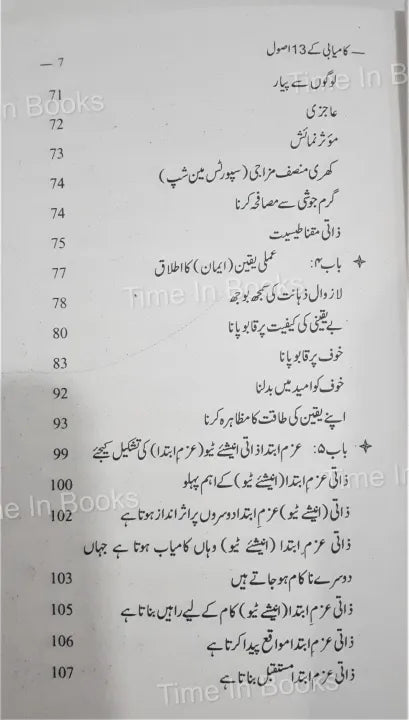 کامیابی کے 13 اصول — 7 —
لوگوں سے پیار 71
عاجزی 72
مؤثر نمائش 73
کھری منصف مزاجی (سپورٹس مین شپ) 74
گرم جوشی سے مصافحہ کرنا 74
ذاتی مقناطیسیت 75
باب ۴: عملی یقین (ایمان) کا اطلاق 77
لازوال ذہانت کی سمجھ بوجھ 78
بے یقینی کی کیفیت پر قابو پانا 80
خوف پر قابو پانا 83
خوف کو امید میں بدلنا 92
اپنے یقین کی طاقت کا مظاہرہ کرنا 93
باب ۵: عزم ابتدا ذاتی انیشئے ٹیو (عزم ابتدا) کی تشکیل کیجئے 99
ذاتی عزم ابتدا (انیشئے ٹیو) کے اہم پہلو 100
ذاتی (انیشئے ٹیو) عزم ابتدا دوسروں پر اثر انداز ہوتا ہے 102
ذاتی عزم ابتدا (انیشئے ٹیو) وہاں کامیاب ہوتا ہے جہاں
دوسرے ناکام ہو جاتے ہیں 103
ذاتی عزم ابتدا (انیشئے ٹیو) کام کے لیے راہیں بناتا ہے 105
ذاتی عزم ابتدا مواقع پیدا کرتا ہے 106
ذاتی عزم ابتدا مستقبل بناتا ہے 107
Time In B
n Books
Time In Books
Time In
e In Books
Time In Books